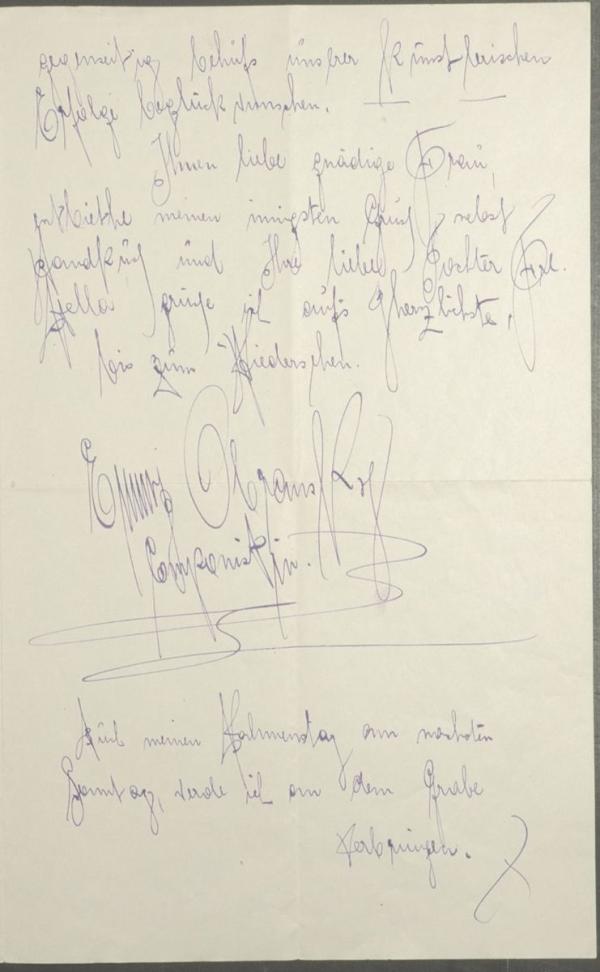 gegenseitig behufs unsrer künstlerischen
Erfolge beglückwunschen.
Ihnen liebe gnädige Frau,
entbiethe meinen innigsten Gruß, nebst
Handkuß und Ihre liebe Tochter Frl.
Hella grüße ich aufs herzlichste,
bis zum Wiedersehen.
Componistin.
Auch meinen Nahmenstag am nachsten
Sonntag, werde ich an dem Grabe
verbringen.